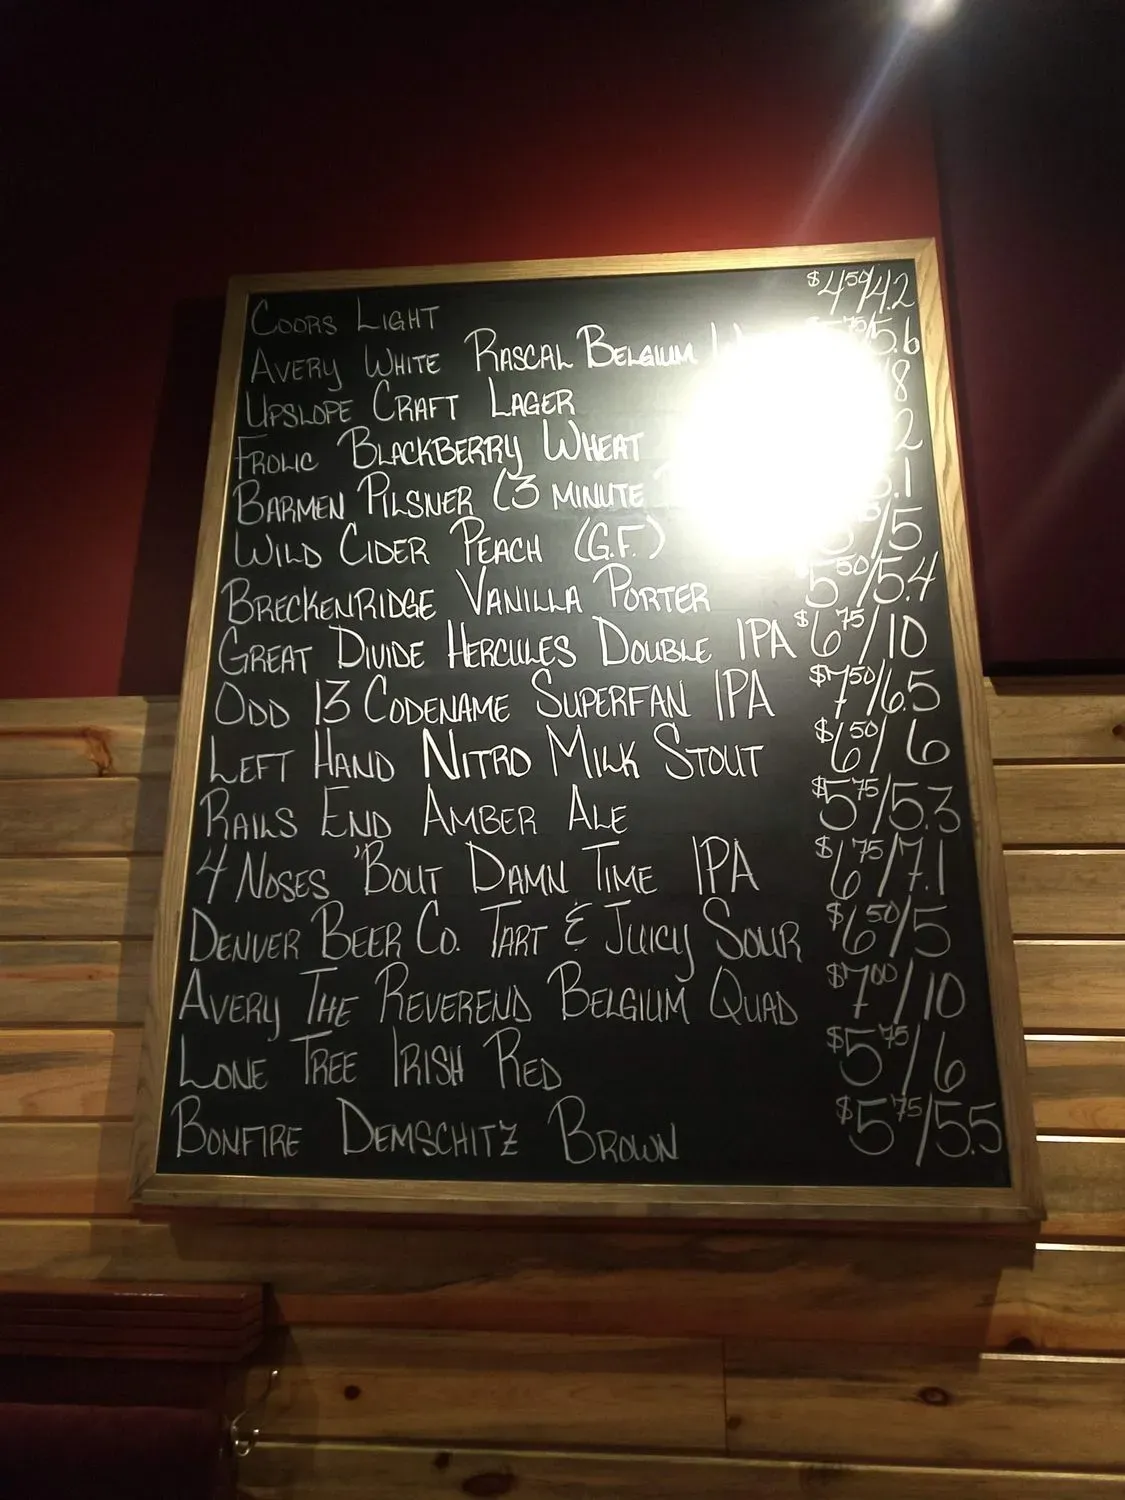 COORS LIGHT $4.50/4.2
AVERY WHITE RASCAL BELGIUM 75/5.6
UPSLOPE CRAFT LAGER
FROLIC BLACKBERRY WHEAT
BARMEN PILSNER (3 MINUTE
WILD CIDER PEACH (G.F.) /5
BRECKENRIDGE VANILLA PORTER 5.50/5.4
GREAT DIVIDE HERCULES DOUBLE IPA $6.75/10
ODD 13 CODENAME SUPERFAN IPA $7.50/6.5
LEFT HAND NITRO MILK STOUT $6.50/6
RAILS END AMBER ALE $5.75/5.3
4 NOSES 'BOUT DAMN TIME IPA $6.75/7.1
DENVER BEER CO. TART & JUICY SOUR $6.50/5
AVERY THE REVEREND BELGIUM QUAD $7.00/10
LONE TREE IRISH RED $5.75/6
BONFIRE DEMSCHITZ BROWN $5.75/5.5